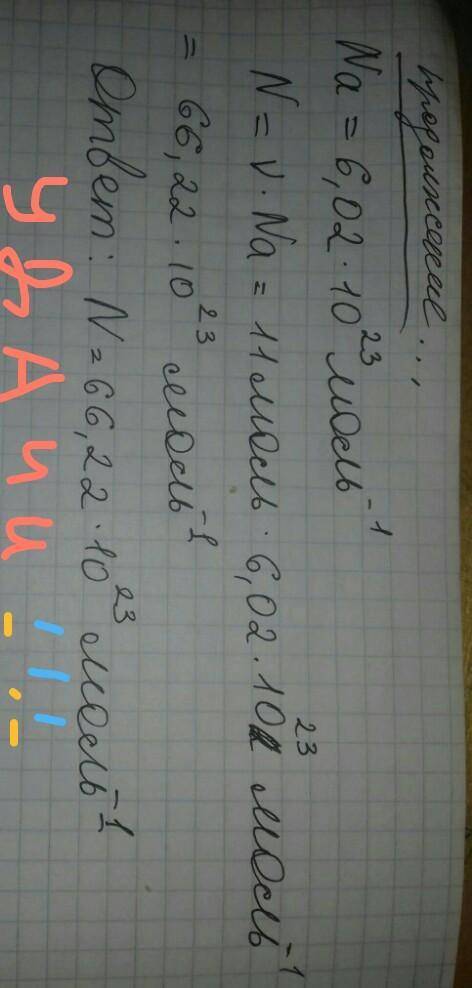 продолжение...
Na = 6,02 · 10²³ моль⁻¹
N = ν · Na = 11 моль · 6,02 · 10²³ моль⁻¹
= 66,22 · 10²³ моль⁻¹
Ответ: N = 66,22 · 10²³ моль⁻¹
удАчи!!!